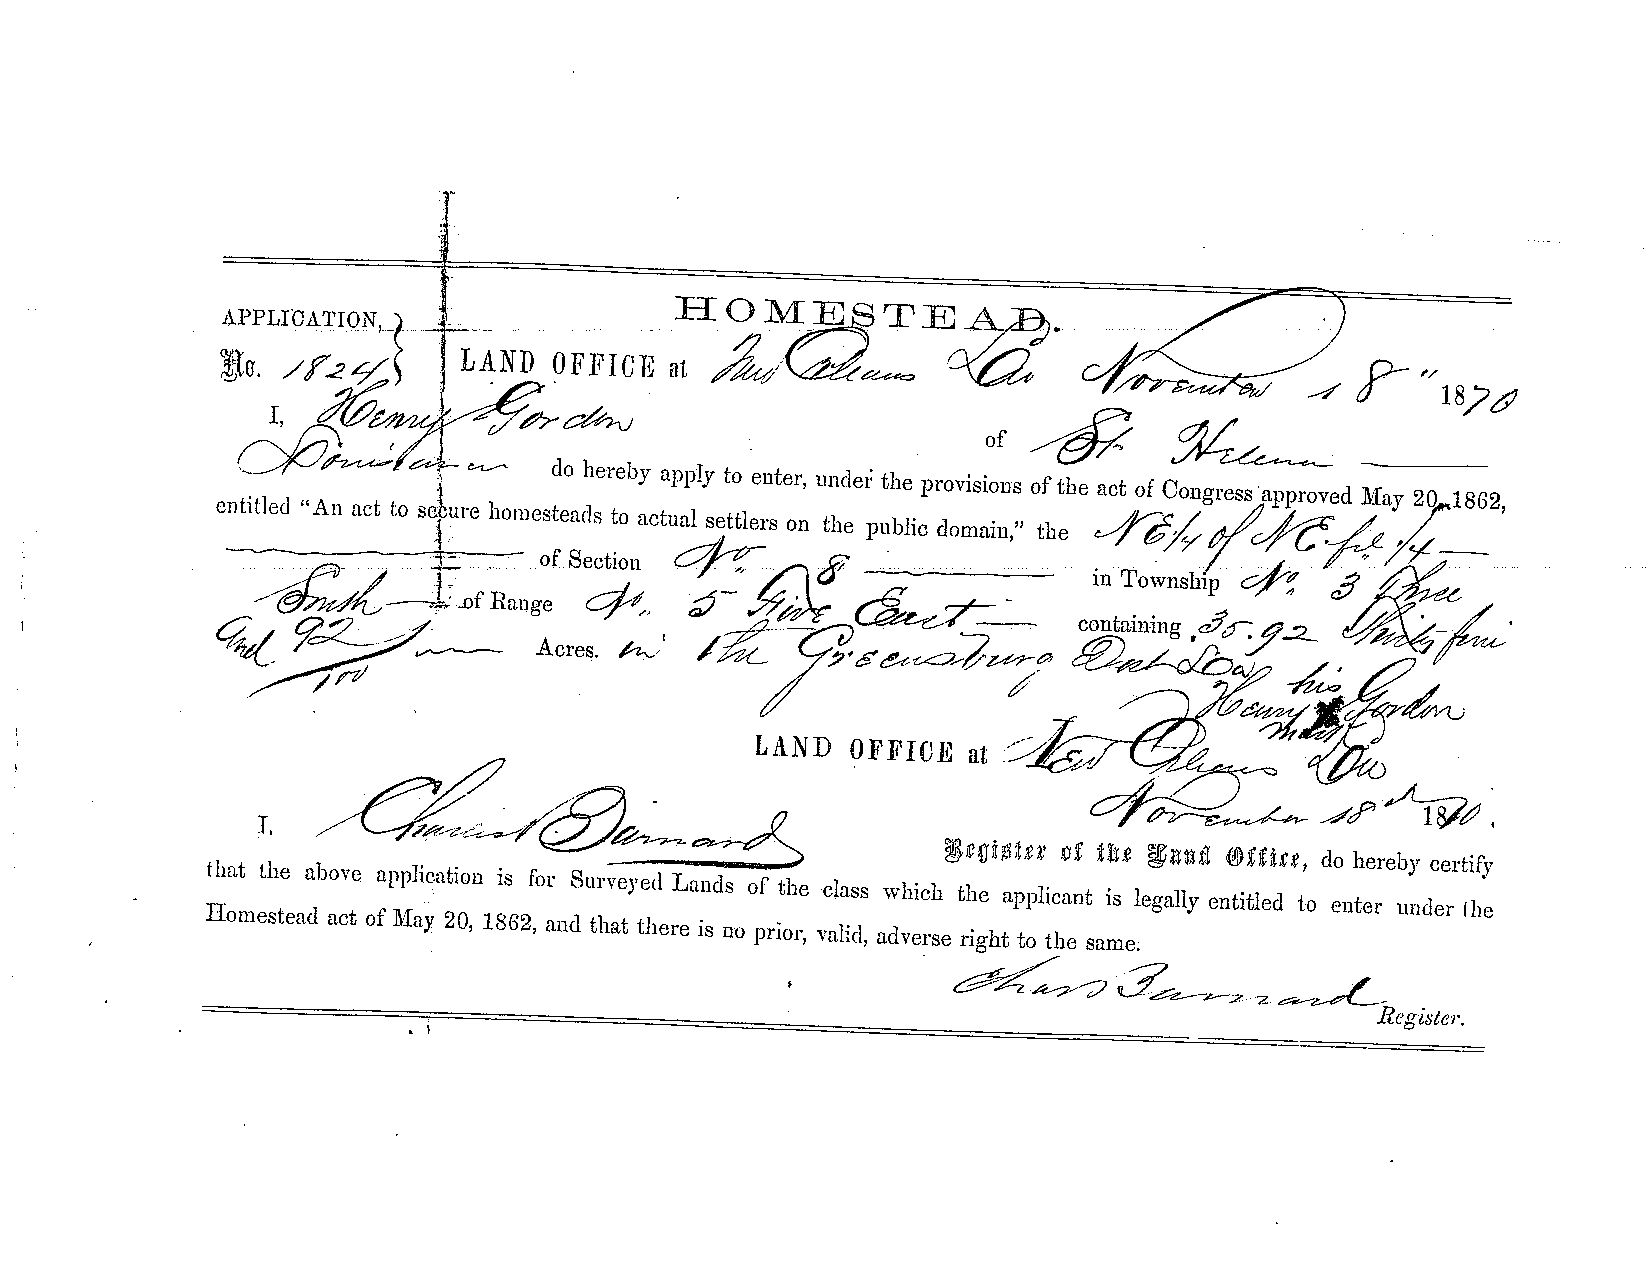 HOMESTEAD.
APPLICATION,
No. 1824 LAND OFFICE at New Orleans La November 18" 1870
I, Henry Gordon of St Helena
Louisiana do hereby apply to enter, under the provisions of the act of Congress approved May 20, 1862,
entitled “An act to secure homesteads to actual settlers on the public domain,” the NE/4 of NE. frl. 1/4
of Section No. 8 in Township No. 3 Three
South of Range No. 5 Five East containing 35.92 Thirty five
and 92/100 Acres. in the Greensburg Dist La
his
Henry X Gordon
mark
LAND OFFICE at New Orleans La
November 18th 1870.
I, Charles Barnard Register of the Land Office, do hereby certify
that the above application is for Surveyed Lands of the class which the applicant is legally entitled to enter under the
Homestead act of May 20, 1862, and that there is no prior, valid, adverse right to the same.
Chas Barnard
Register.